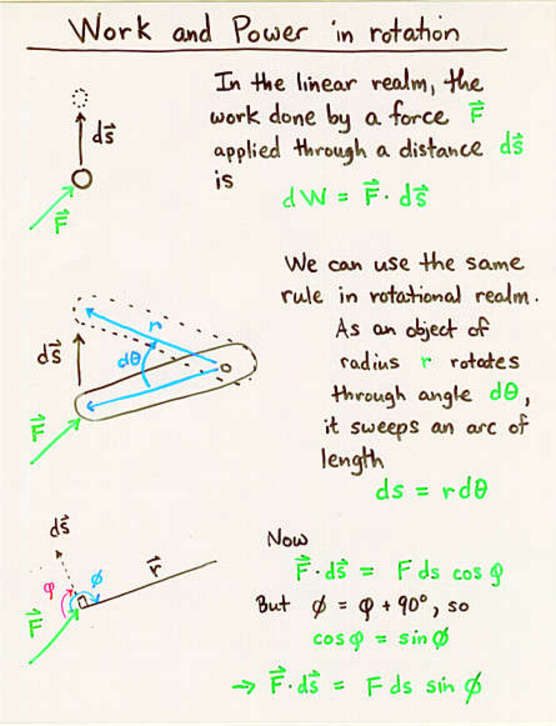 Work and Power in rotation
In the linear realm, the
work done by a force F⃗
applied through a distance ds⃗
is
dW = F⃗ · ds⃗
ds⃗
F⃗
We can use the same
rule in rotational realm.
As an object of
radius r rotates
through angle dθ,
it sweeps an arc of
length
ds = r dθ
r
dθ
ds⃗
F⃗
Now
F⃗ · ds⃗ = F ds cos φ
But ϕ = φ + 90°, so
cos φ = sin ϕ
→ F⃗ · ds⃗ = F ds sin ϕ
ds⃗
r⃗
φ
ϕ
F⃗